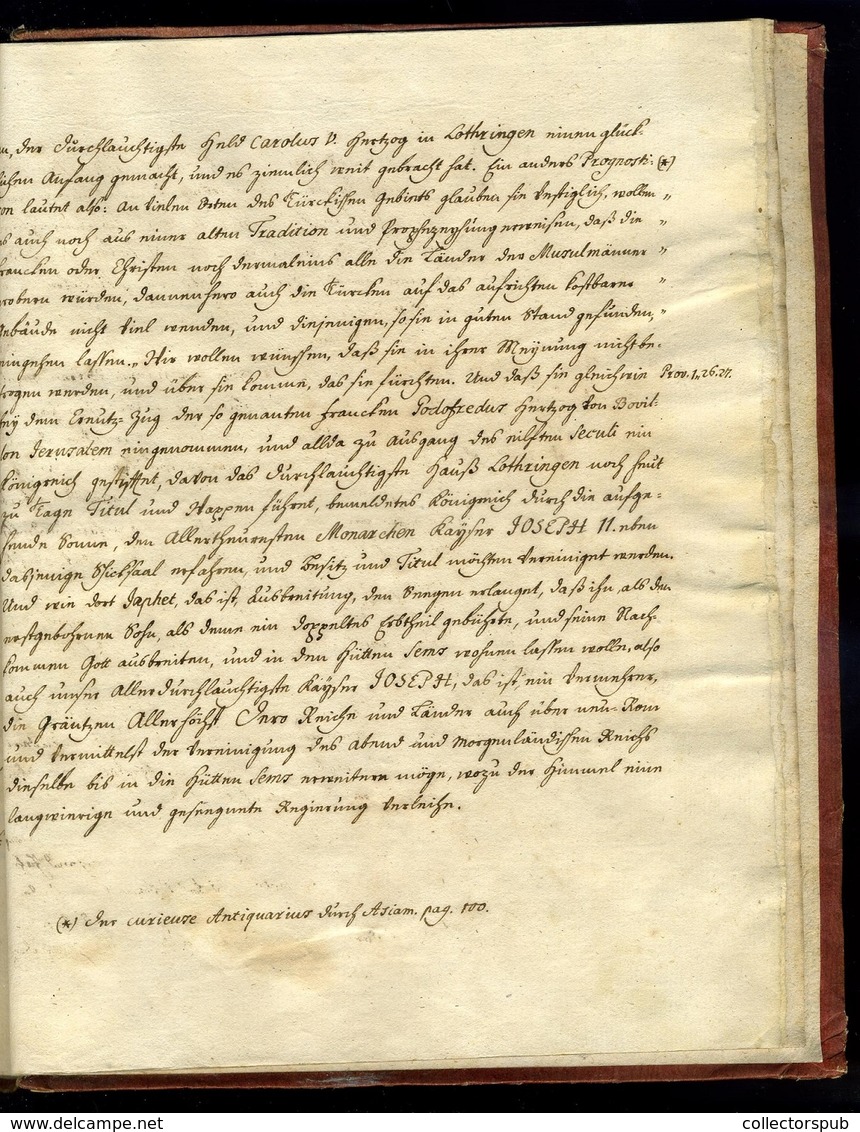 der Durchlauchtigste Held Carolus V. Hertzog in Lothringen einen glück-
Anfang gemacht, und es ziemlich weit gebracht hat. Ein anders Prognosti: (*)
lautet also: An vielen Orten des Türckischen Gebiets glauben sie vestiglich, wollen „
auch noch aus einer alten Tradition und Prophezeyhung erweisen, daß die „
francken oder Christen noch dermaleins alle die Länder der Musulmänner „
erobern würden, dannenhero auch die Türcken auf das aufrichten kostbarer „
Gebäude nicht viel wenden, und diejenigen, so sie in guten Stand gefunden, „
eingehen lassen. „ Wir wollen wünschen, daß sie in ihrer Meÿnung nicht be-
trogen werden, und über sie komme, das sie fürchten. Und daß sie gleichwie Prov. 1, 26. 27.
beÿ dem Creutz-Zug der so genanten francken Godofredus Hertzog von Bovil-
lon Jerusalem eingenommen, und allda zu Ausgang des eilften Seculi ein
Königreich gestifftet, davon das Durchlauchtigste Hauß Lothringen noch heut
zu Tage Titul und Wappen führet, bemeldetes Königreich durch die aufge-
hende Sonne, den Allertheuresten Monarchen Kaÿser JOSEPH II. eben
dasjenige Schicksaal erfahren, und Besitz und Titul möchten vereiniget werden.
Und wie dort Japhet, das ist, Ausbreitung, den Seegen erlanget, daß ihn, als den
erstgebohrnen Sohn, als deme ein doppeltes Erbtheil gebührte, und seine Nach-
kommen Gott ausbreiten, und in den Hütten Sems wohnen lassen wolle, also
auch unser Allerdurchlauchtigste Kaÿser JOSEPH, das ist, ein Vermehrer,
die Gräntzen Allerhöchst Dero Reiche und Länder auch über neu-Rom
und vermittelst der Vereinigung des Abend und Morgenländischen Reichs
dieselbe bis in die Hütten Sems erweitern möge, wozu der Himmel eine
langwierige und geseegnete Regierung verleihe.
(*) Der curieuse Antiquarius durch Asiam. pag. 100.
www.delcampe.net
collectorspub